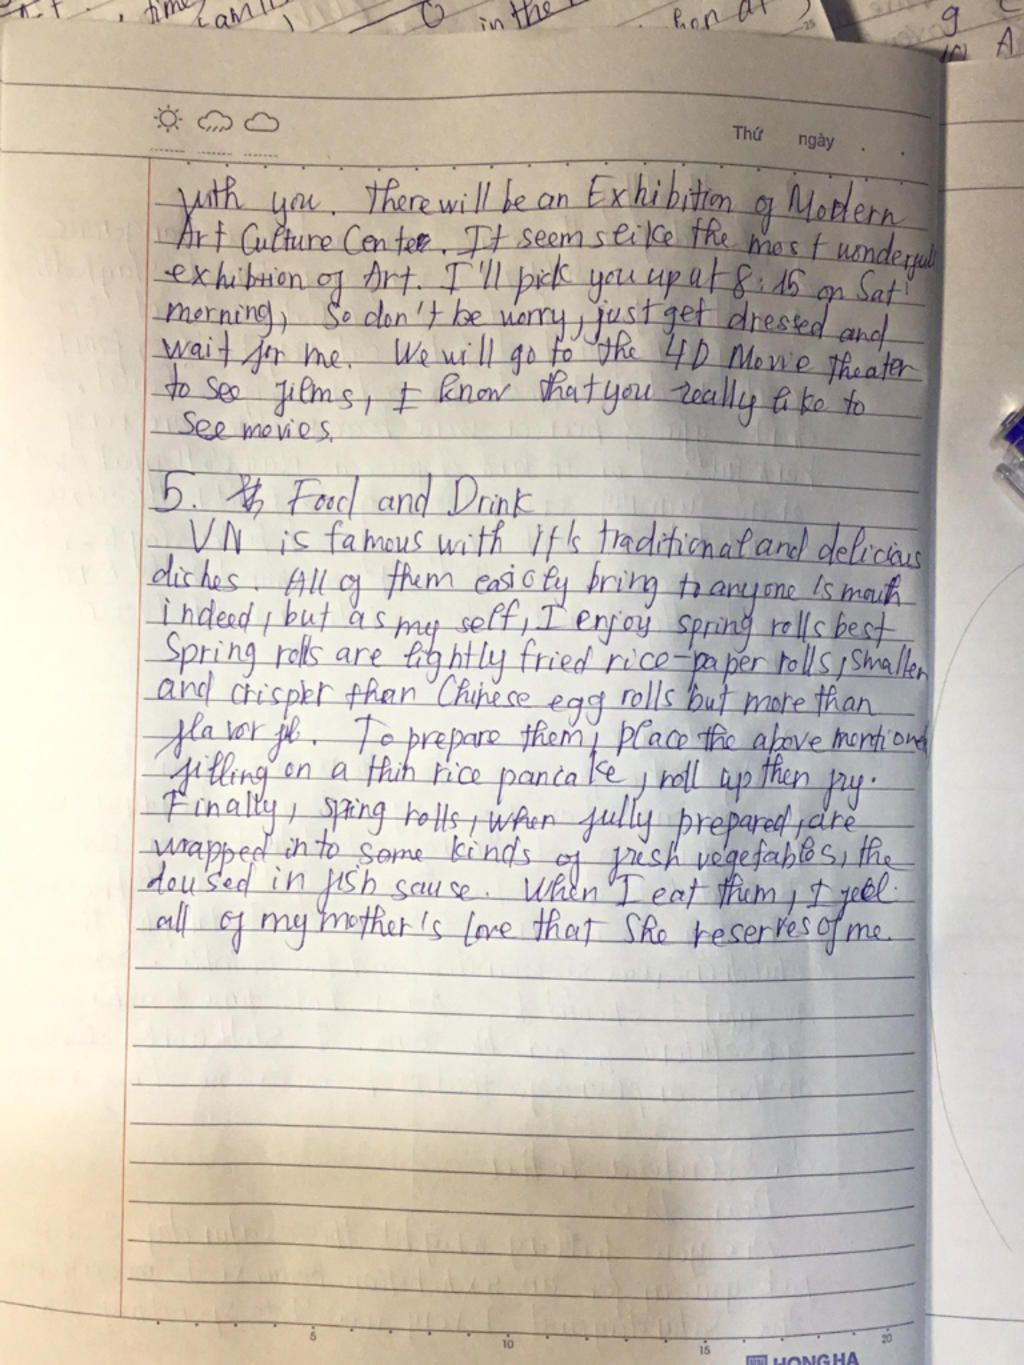 time
in the
Thứ ngày . .
with you. There will be an Exhibition of Modern
Art Culture Center. It seems like the most wonderful
exhibition of Art. I'll pick you up at 8:15 on Sat
morning, so don't be worry, just get dressed and
wait for me. We will go to the 4D Movie theater
to see films, I know that you really like to
see movies.
5. Food and Drink
VN is famous with it's traditional and delicious
dishes. All of them easicly bring to anyone's mouth
indeed, but as my self, I enjoy spring rolls best
Spring rolls are lightly fried rice-paper rolls, smaller
and crispier than Chinese egg rolls but more than
flavorful. To prepare them, place the above mentioned
filling on a thin rice pancake, roll up then fry.
Finally, spring rolls, when fully prepared, are
wrapped into some kinds of fresh vegetables, the
doused in fish sause. When I eat them, I feel
all of my mother's love that she reserves of me.
5 10 15 20
HONG HA